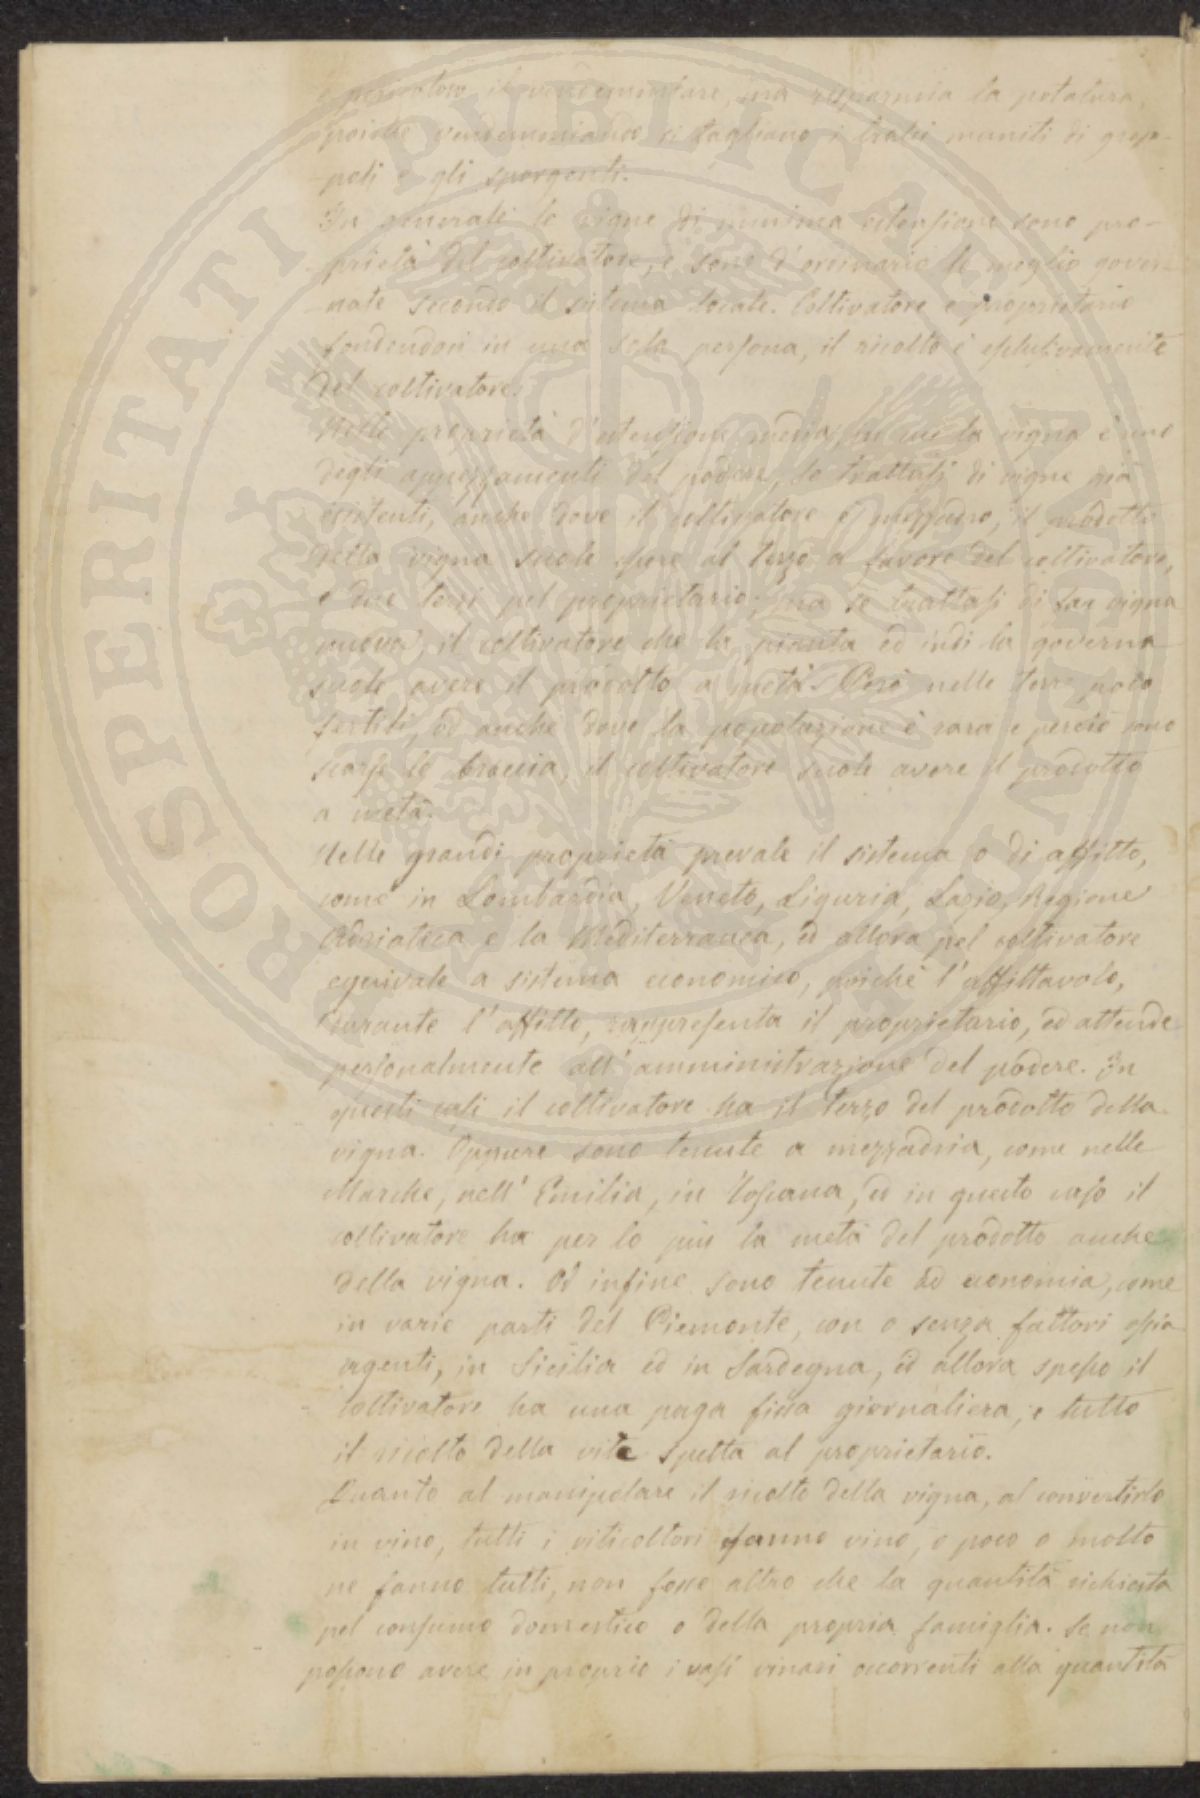 è pericoloso il vendemmiare, ma risparmia la potatura,
poichè vendemmiando si tagliano i tralci muniti di grap-
-poli e gli sporgenti.
In generale le vigne di minima estensione sono pro-
-prietà del coltivatore, e sono d'ordinario le meglio gover-
-nate secondo il sistema locale. Coltivatore e proprietario
fondendosi in una sola persona, il ricolto è esclusivamente
del coltivatore.
Nelle proprietà d'estensione media, in cui la vigna è uno
degli appezzamenti del podere, se trattasi di vigne già
esistenti, anche dove il coltivatore è mezzadro, il prodotto
della vigna suole essere al terzo a favore del coltivatore,
e due terzi pel proprietario; ma se trattasi di far vigna
nuova, il coltivatore che la pianta ed indi la governa
suole avere il prodotto a metà. Così nelle terre poco
fertili, ed anche dove la popolazione è rara e perciò sono
scarse le braccia, il coltivatore suole avere il prodotto
a metà.
Nelle grandi proprietà prevale il sistema o di affitto,
come in Lombardia, Veneto, Liguria, Lazio, Regione
Adriatica e la Mediterranea, ed allora pel coltivatore
equivale a sistema economico, poichè l'affittavolo,
durante l'affitto, rappresenta il proprietario, ed attende
personalmente all'amministrazione del podere. In
questi casi il coltivatore ha il terzo del prodotto della
vigna. Oppure sono tenute a mezzadria, come nelle
Marche, nell'Emilia, in Toscana, ed in questo caso il
coltivatore ha per lo più la metà del prodotto anche
della vigna. Od infine sono tenute ad economia, come
in varie parti del Piemonte, con o senza fattori ossia
agenti, in Sicilia ed in Sardegna, ed allora spesso il
coltivatore ha una paga fissa giornaliera, e tutto
il ricolto della vite spetta al proprietario.
Quanto al manipolare il ricolto della vigna, al convertirlo
in vino, tutti i viticoltori fanno vino, o poco o molto
ne fanno tutti, non fosse altro che la quantità richiesta
pel consumo domestico o della propria famiglia. Se non
possono avere in proprio i vasi vinari occorrenti alla quantità
PROSPERITATI PUBLICAE AUGENDAE